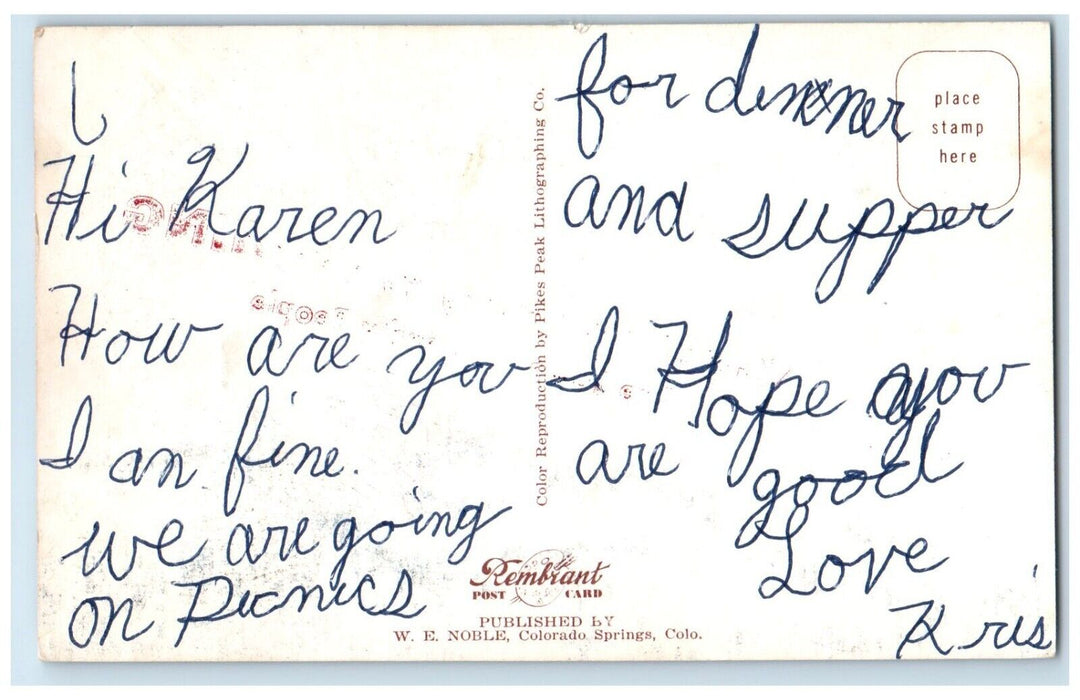 Hi Karen
How are you
I an fine.
we are going
on Picnics
for dinner
and supper
I Hope you
are good
Love
Kris
place
stamp
here
Color Reproduction by Pikes Peak Lithographing Co.
Rembrant
POST CARD
PUBLISHED BY
W. E. NOBLE, Colorado Springs, Colo.